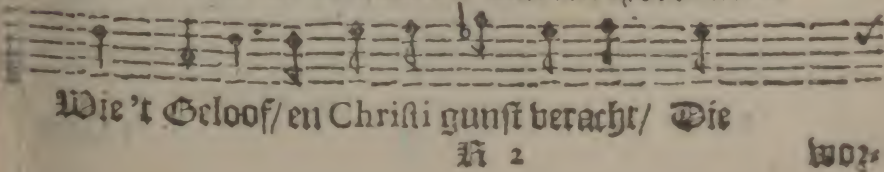 Wie 't Geloof/ en Christi gunst veracht/ Die
K 2 wor-